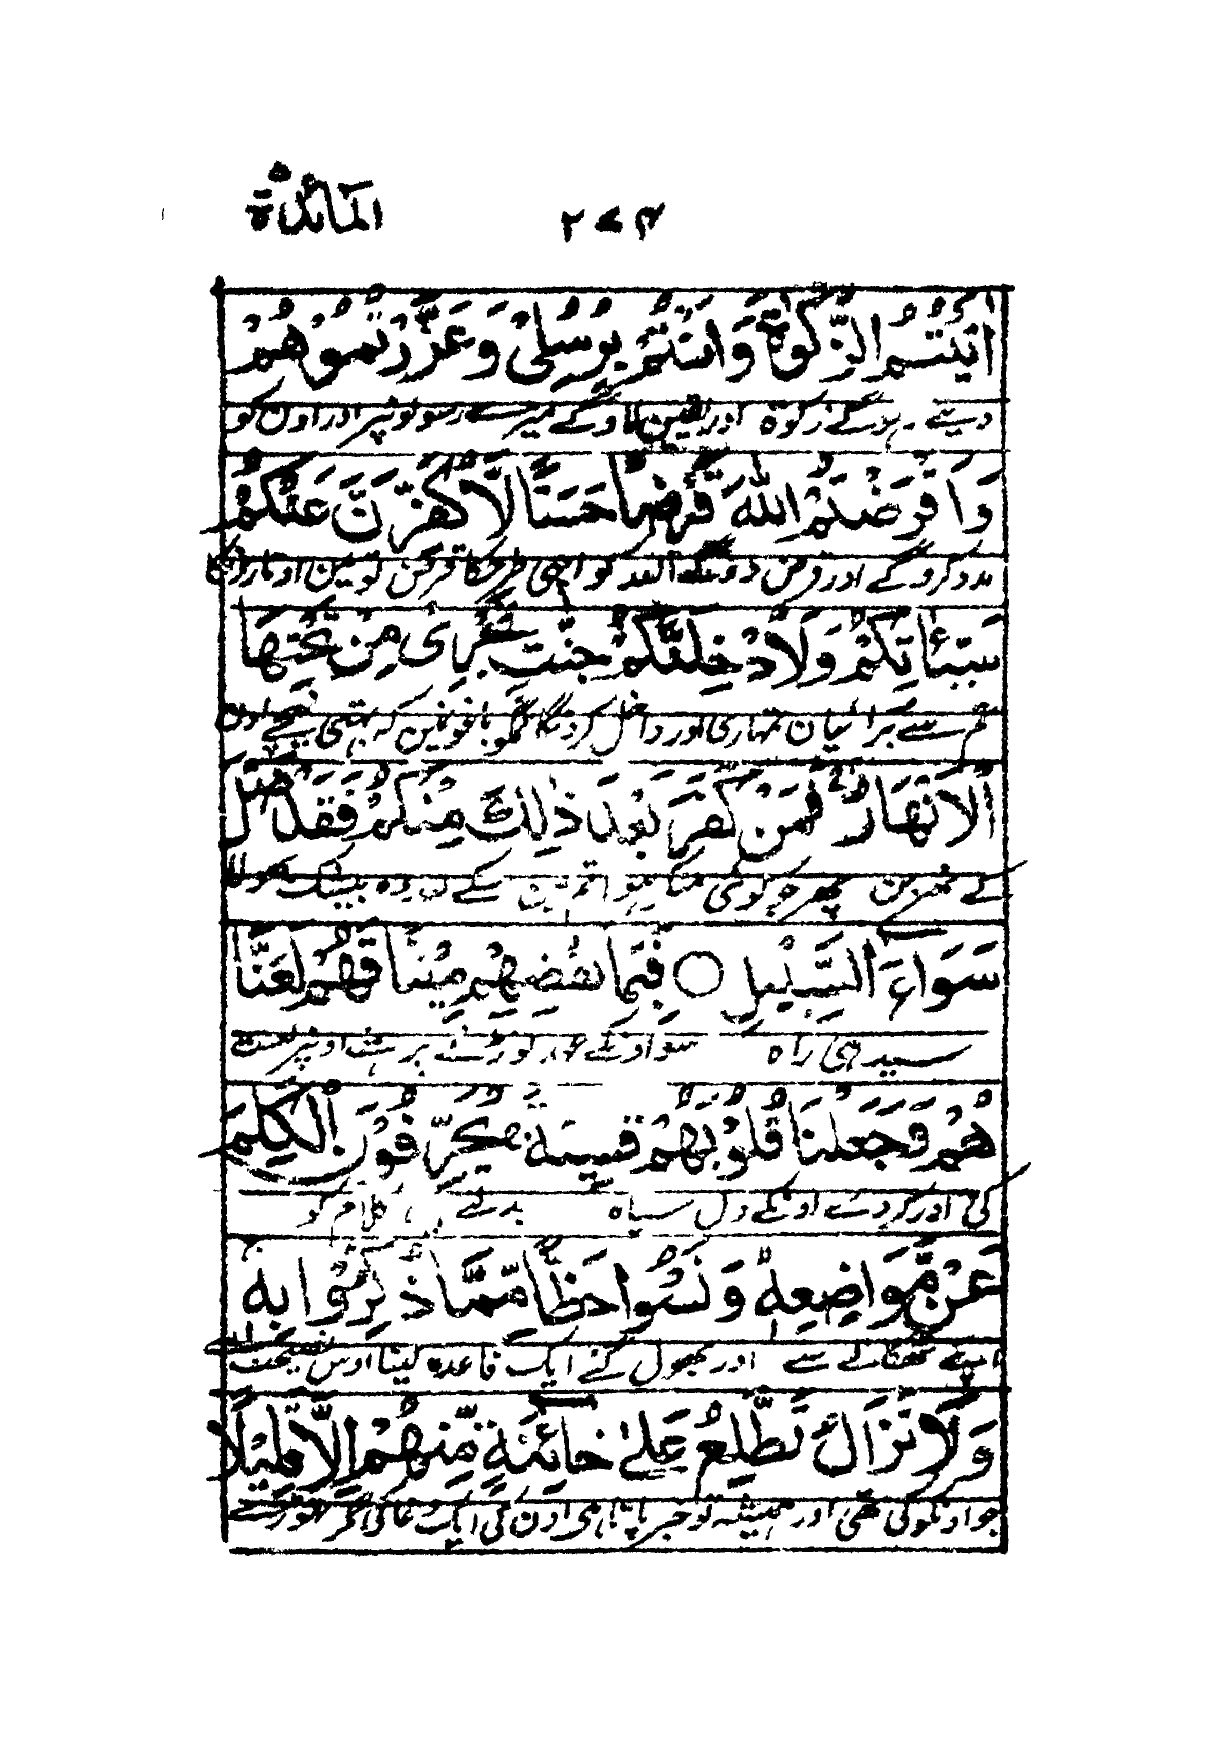 المائدة ۵
۲۷۴
اٰتَيْتُمُ الزَّكٰوةَ وَاٰمَنْتُمْ بِرُسُلِيْ وَعَزَّرْتُمُوْهُمْ
دیتے رہوگے زکوٰۃ اور یقین لاوگے میرے رسولونپر اور اون کو
وَاَقْرَضْتُمُ اللّٰهَ قَرْضًا حَسَنًا لَّاُكَفِّرَنَّ عَنْكُمْ
مدد کروگے اور قرض دوگے اللہ کو اچھی طرح کا قرض تو مین اوتارونگا
سَيِّاٰتِكُمْ وَلَاُدْخِلَنَّكُمْ جَنّٰتٍ تَجْرِيْ مِنْ تَحْتِهَا
تم سے برائیان تمہاری اور داخل کرونگا تمکو باغونمین کہ بہتی نیچے اون
الْاَنْهٰرُ فَمَنْ كَفَرَ بَعْدَ ذٰلِكَ مِنْكُمْ فَقَدْ ضَلَّ
کے نہرین پھر جو کوئی منکر ہوا تم مین اسکے بعد وہ بیشک بھولا
سَوَآءَ السَّبِيْلِ ○ فَبِمَا نَقْضِهِمْ مِّيْثَاقَهُمْ لَعَنّٰ
سیدھی راہ سو اونکے عہد توڑنے پر ہمنے اونپر لعنت
هُمْ وَجَعَلْنَا قُلُوْبَهُمْ قٰسِيَةً يُحَرِّفُوْنَ الْكَلِمَ
کی اور کردے اونکے دل سیاہ بدلتے ہین کلام کو
عَنْ مَّوَاضِعِهٖ وَنَسُوْا حَظًّا مِّمَّا ذُكِّرُوْا بِهٖ
اپنے ٹھکانے سے اور بھول گئے ایک فائدہ لینا اوس نصیحت سے
وَلَا تَزَالُ تَطَّلِعُ عَلٰى خَآئِنَةٍ مِّنْهُمْ اِلَّا قَلِيْلًا
جو اونکو کی تھی اور ہمیشہ تو خبر پاتا ہی اون کی ایک دغا کی مگر تھوڑے